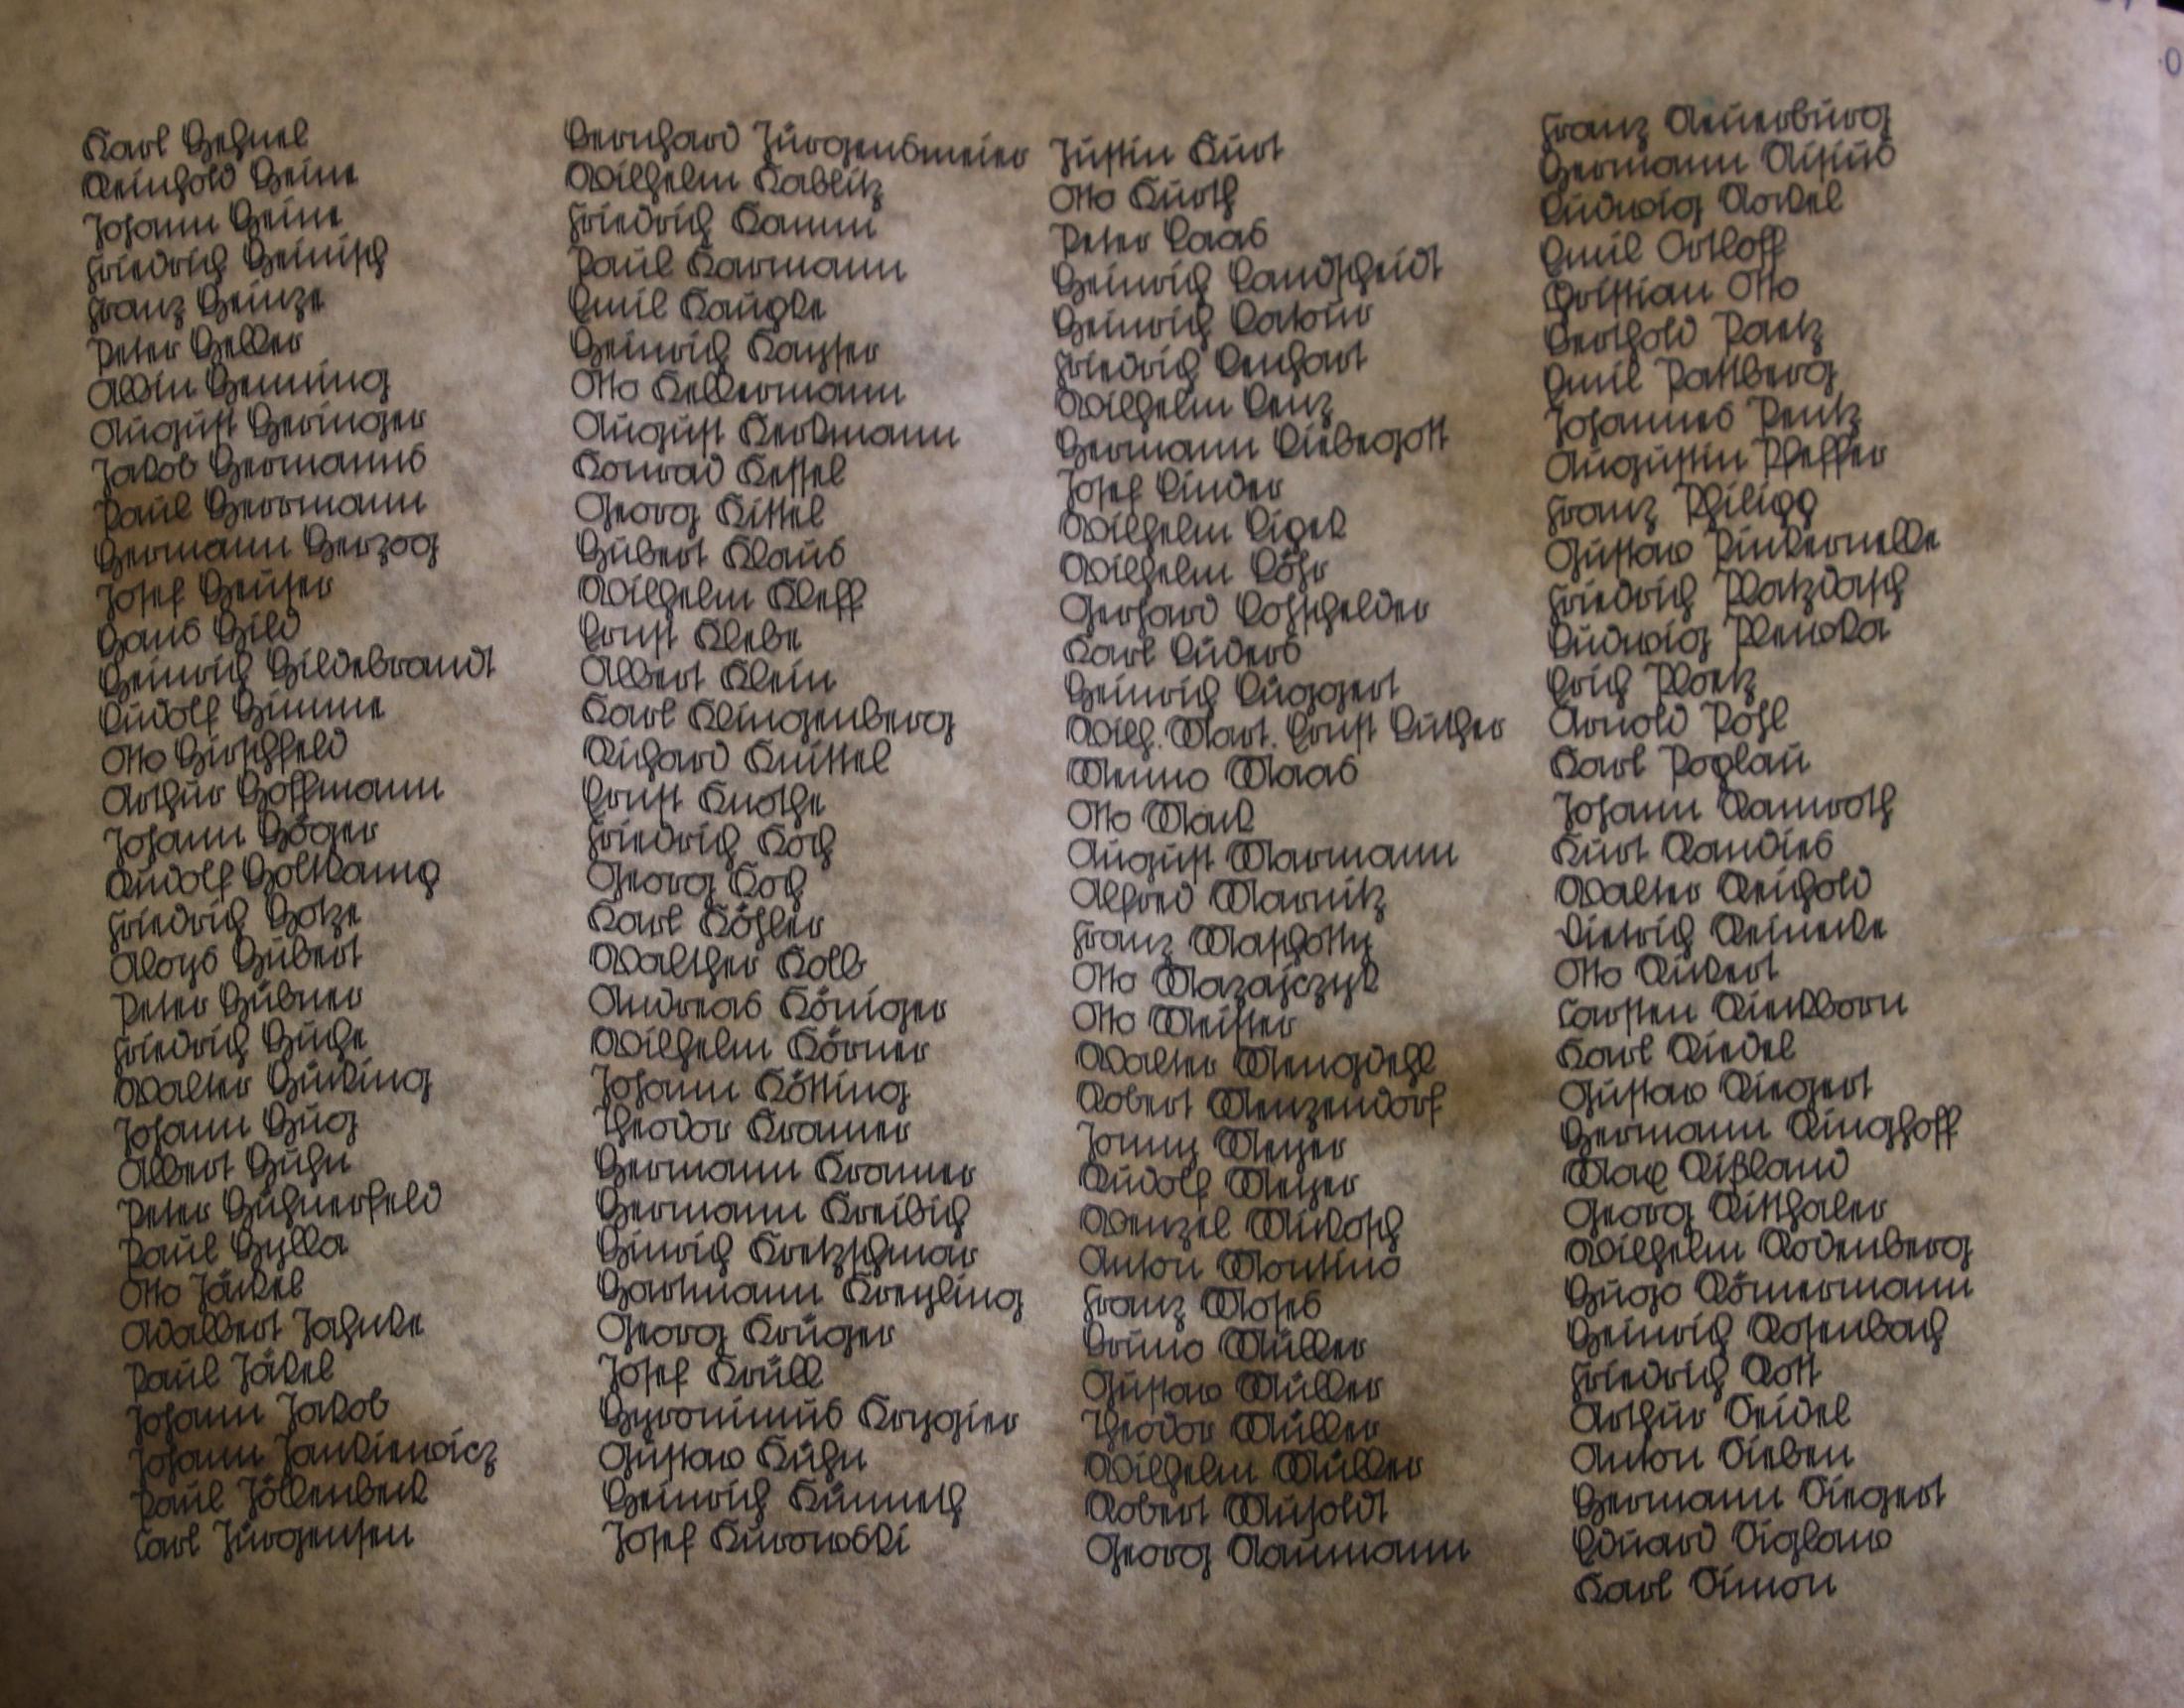 Karl Hehnel
Reinhold Heine
Johann Heine
Friedrich Heinisch
Franz Heinze
Peter Heller
Albin Henning
August Heringer
Jakob Hermanns
Paul Herrmann
Hermann Herzog
Josef Heuser
Hans Hild
Heinrich Hildebrandt
Rudolf Himme
Otto Hirschfeld
Arthur Hoffmann
Johann Höger
Rudolf Holtkamp
Friedrich Hotze
Aloys Hubert
Peter Hübner
Friedrich Huche
Walter Hücking
Johann Hug
Albert Huhn
Peter Hühnerfeld
Paul Hylla
Otto Jäckel
Adalbert Jahnke
Paul Jäkel
Johann Jakob
Johann Jankiewicz
Paul Jöllenbeck
Carl Jürgensen
Bernhard Jürgensmeier
Wilhelm Kablitz
Friedrich Kamm
Paul Karmann
Emil Kaupke
Heinrich Kayser
Otto Kellermann
August Kerkmann
Konrad Kessel
Georg Kittel
Hubert Klaus
Wilhelm Kleff
Ernst Klebe
Albert Klein
Karl Klingenberg
Richard Knittel
Ernst Knothe
Friedrich Koch
Georg Koch
Karl Köhler
Walther Kolb
Andreas Königer
Wilhelm Körner
Johann Kötting
Theodor Kramer
Hermann Kramer
Hermann Kreibich
Hinrich Kretzschmar
Hartmann Kreyling
Georg Krüger
Josef Krüll
Hyronimus Krygier
Gustav Kühn
Heinrich Künneth
Josef Kurowski
Justin Kurt
Otto Kurth
Peter Laas
Heinrich Landscheidt
Heinrich Latour
Friedrich Lenhart
Wilhelm Lenz
Hermann Liebegott
Josef Linder
Wilhelm Lipek
Wilhelm Löhr
Gerhard Lohschelder
Karl Lüders
Heinrich Lüggert
Wilh. Mart. Ernst Luther
Menno Maas
Otto Mack
August Marmann
Alfred Marnitz
Franz Maschotty
Otto Mazajczyk
Otto Meister
Walter Mengdehl
Robert Menzendorf
Jonny Meyer
Rudolf Meyer
Wenzel Mikosch
Anton Montino
Franz Moses
Bruno Müller
Gustav Müller
Theodor Müller
Wilhelm Müller
Robert Musoldt
Georg Naumann
Franz Neuerburg
Hermann Nisius
Ludwig Nockel
Emil Ortloff
Christian Otto
Berthold Paetz
Emil Pattberg
Johannes Pentz
Augustin Pfeffer
Franz Philipp
Gustav Pinkernelle
Friedrich Platzdasch
Ludwig Plewka
Erich Ploetz
Arnold Pohl
Karl Poplau
Johann Ramroth
Kurt Randies
Walter Reichold
Dietrich Reinecke
Otto Rickert
Carsten Rieckborn
Karl Riedel
Gustav Riegert
Hermann Ringhoff
Max Rißland
Georg Ritthaler
Wilhelm Rodenberg
Hugo Römermann
Heinrich Rosenbach
Friedrich Rott
Arthur Seidel
Anton Sieben
Hermann Siegert
Eduard Siglaw
Karl Simon